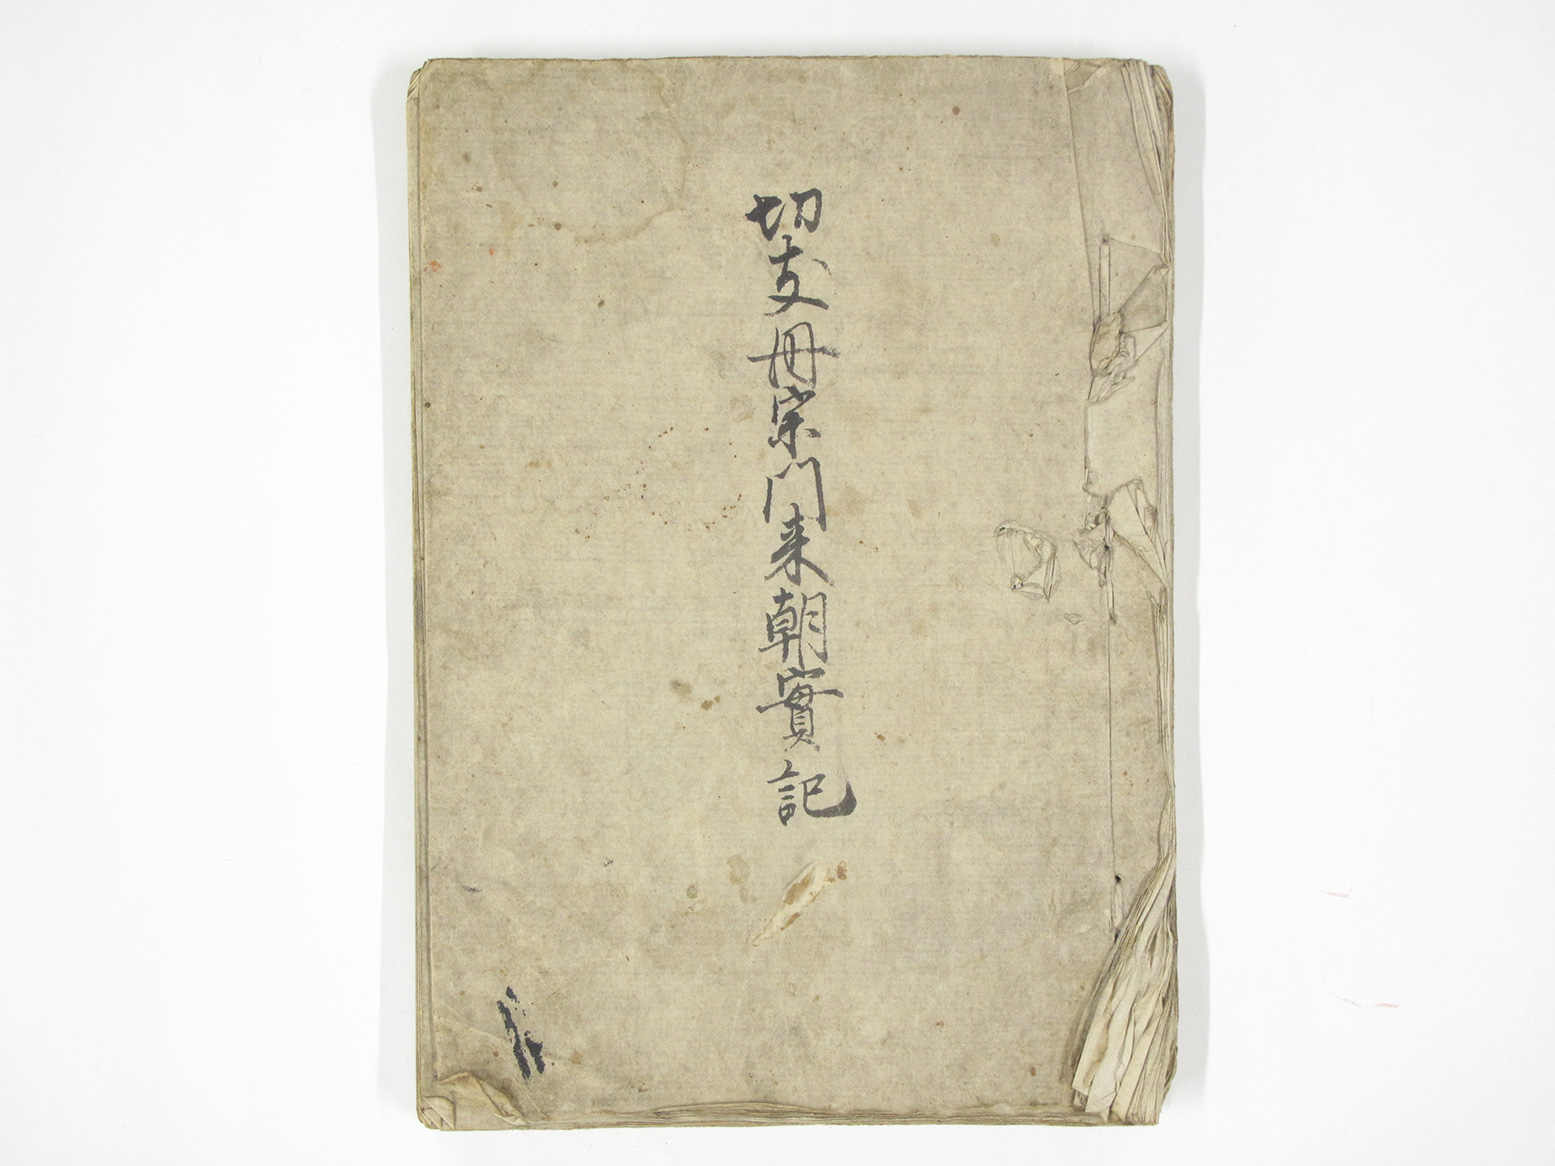 切支丹宗門来朝實記